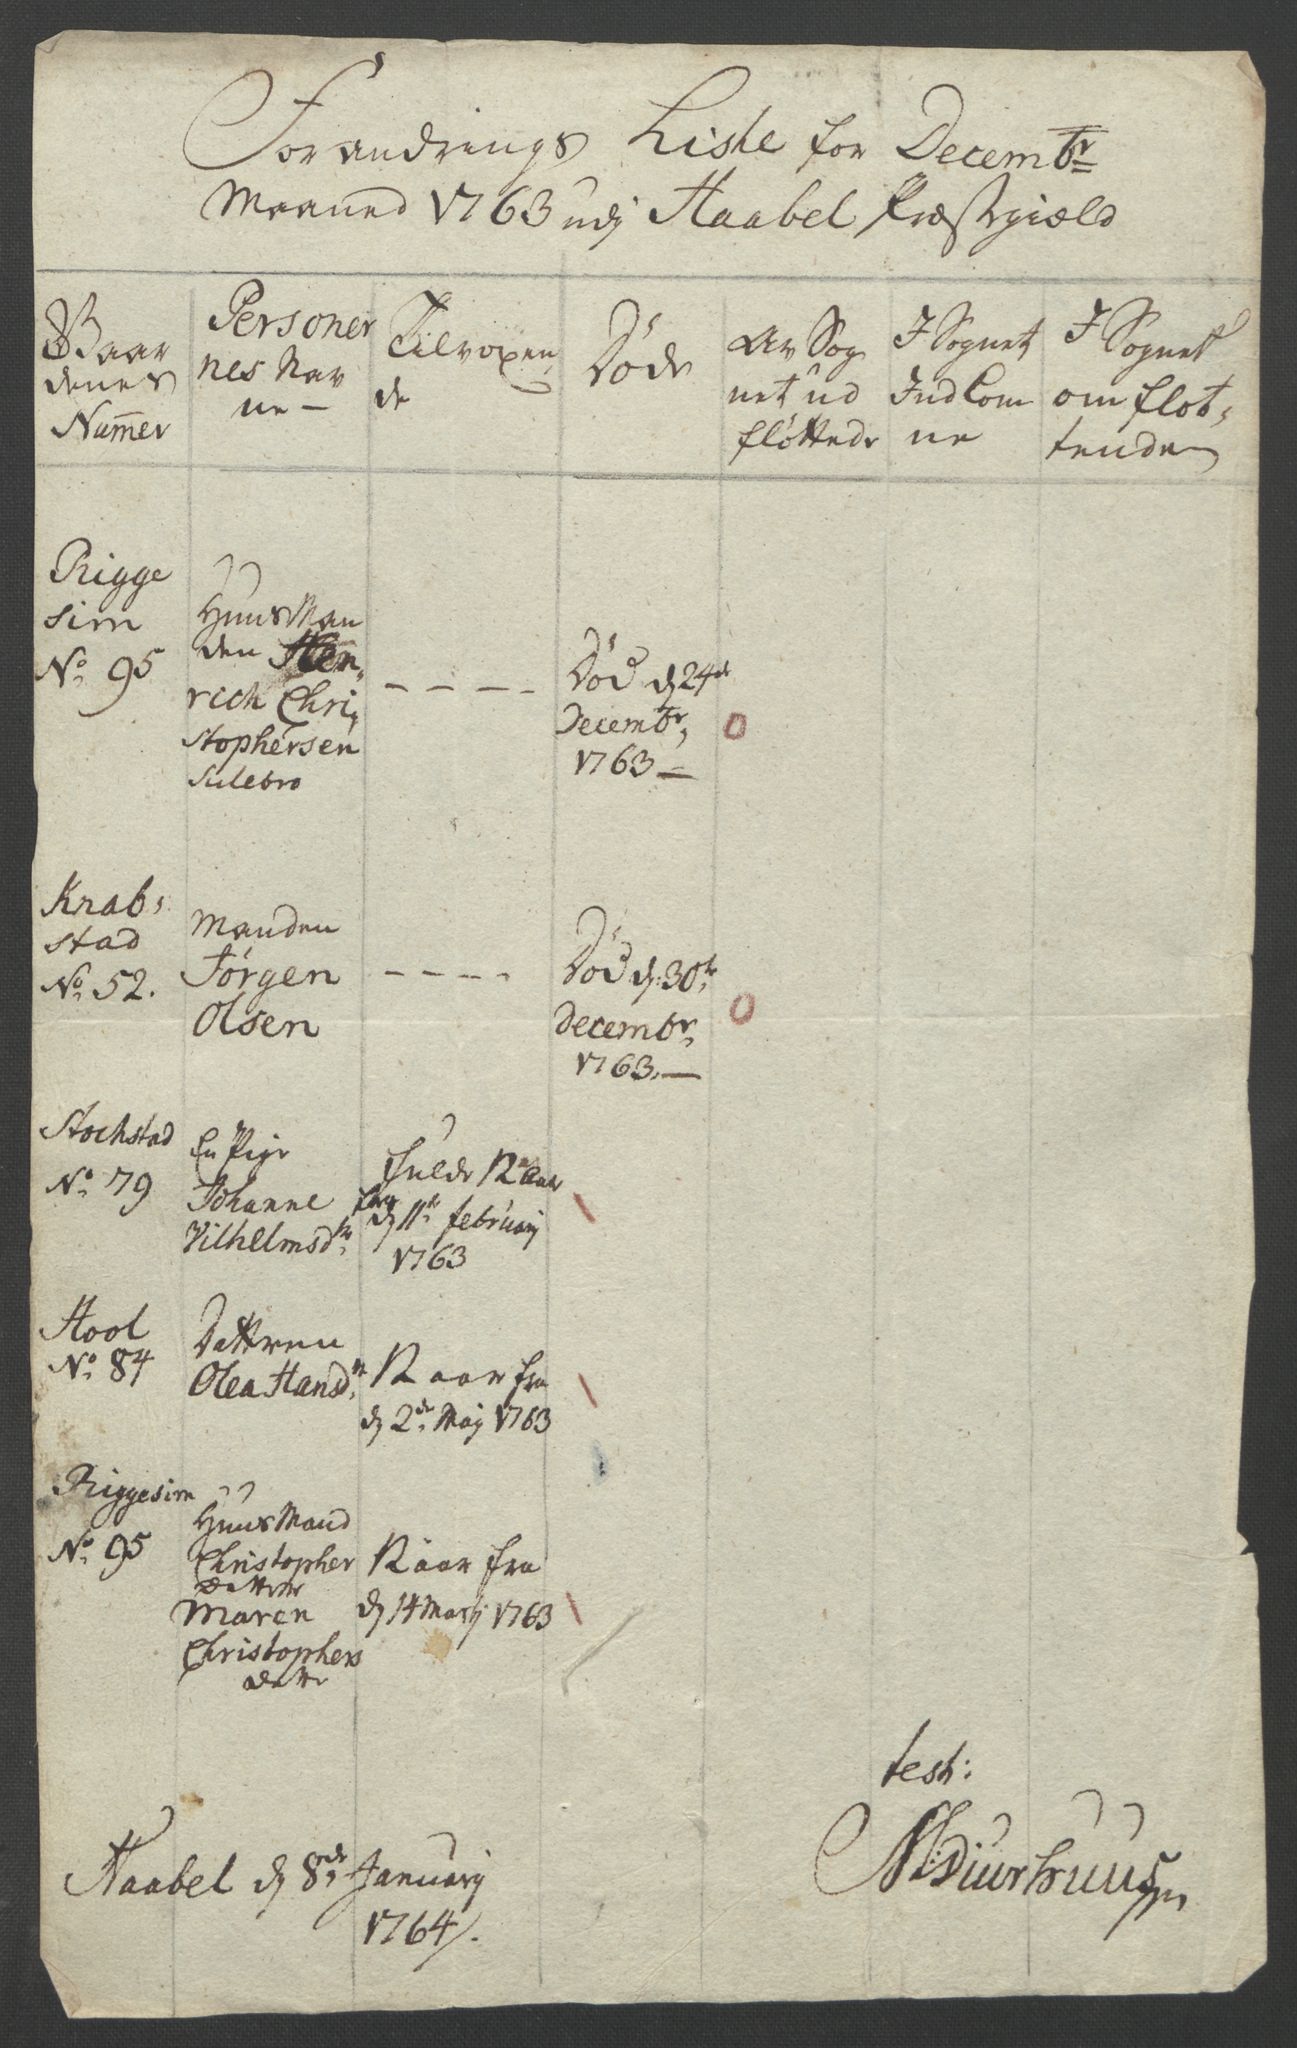 Forandrings Liste for Decembr
Maaned 1763 udj Haabel Præstegiæld
Gaar
denes
Numer
Personer
nes Nav
ne -
Tilvoxen
de
Døde
Av Sog
net ud
fløttede
I Sognet
IndCom
ne
I Sognet
om fløt,
tende
Rigge
sim
No 95
HuusMan
den Hen,
rich Chri,
stophersen
Sulebro
- - - -
Død d 24de
Decembr,
1763 -
Knab,
stad
No 52.
Manden
Jørgen
Olsen
- - - -
Død d: 30te
Decembr,
1763. -
Stochstad
No 79
En Pige
Johanne
Vilhelmsdtr
fulde 12 aar
fra
d 11te februarj
1763
Hool
No 84
Datteren
Olea Hansdtr
12 aar fra
d 2de Maj 1763
Riggesim
No 95
Huus Mand
Christopher
Datter
Maren
Christophers
datter
12 aar fra
d 14 Martj 1763
test:
Haabel d 8de Januarj
1764/.
NDiurhuus